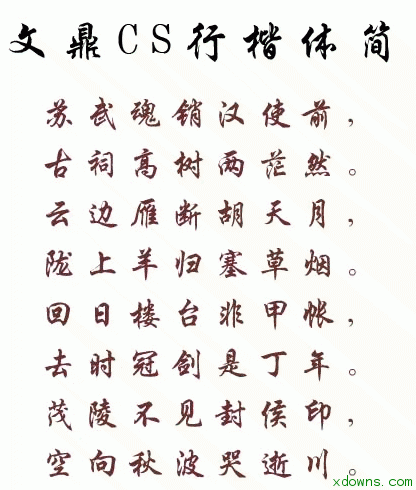 文鼎CS行楷体简
苏武魂销汉使前，
古祠高树两茫然。
云边雁断胡天月，
陇上羊归塞草烟。
回日楼台非甲帐，
去时冠剑是丁年。
茂陵不见封侯印，
空向秋波哭逝川。
xdowns.com